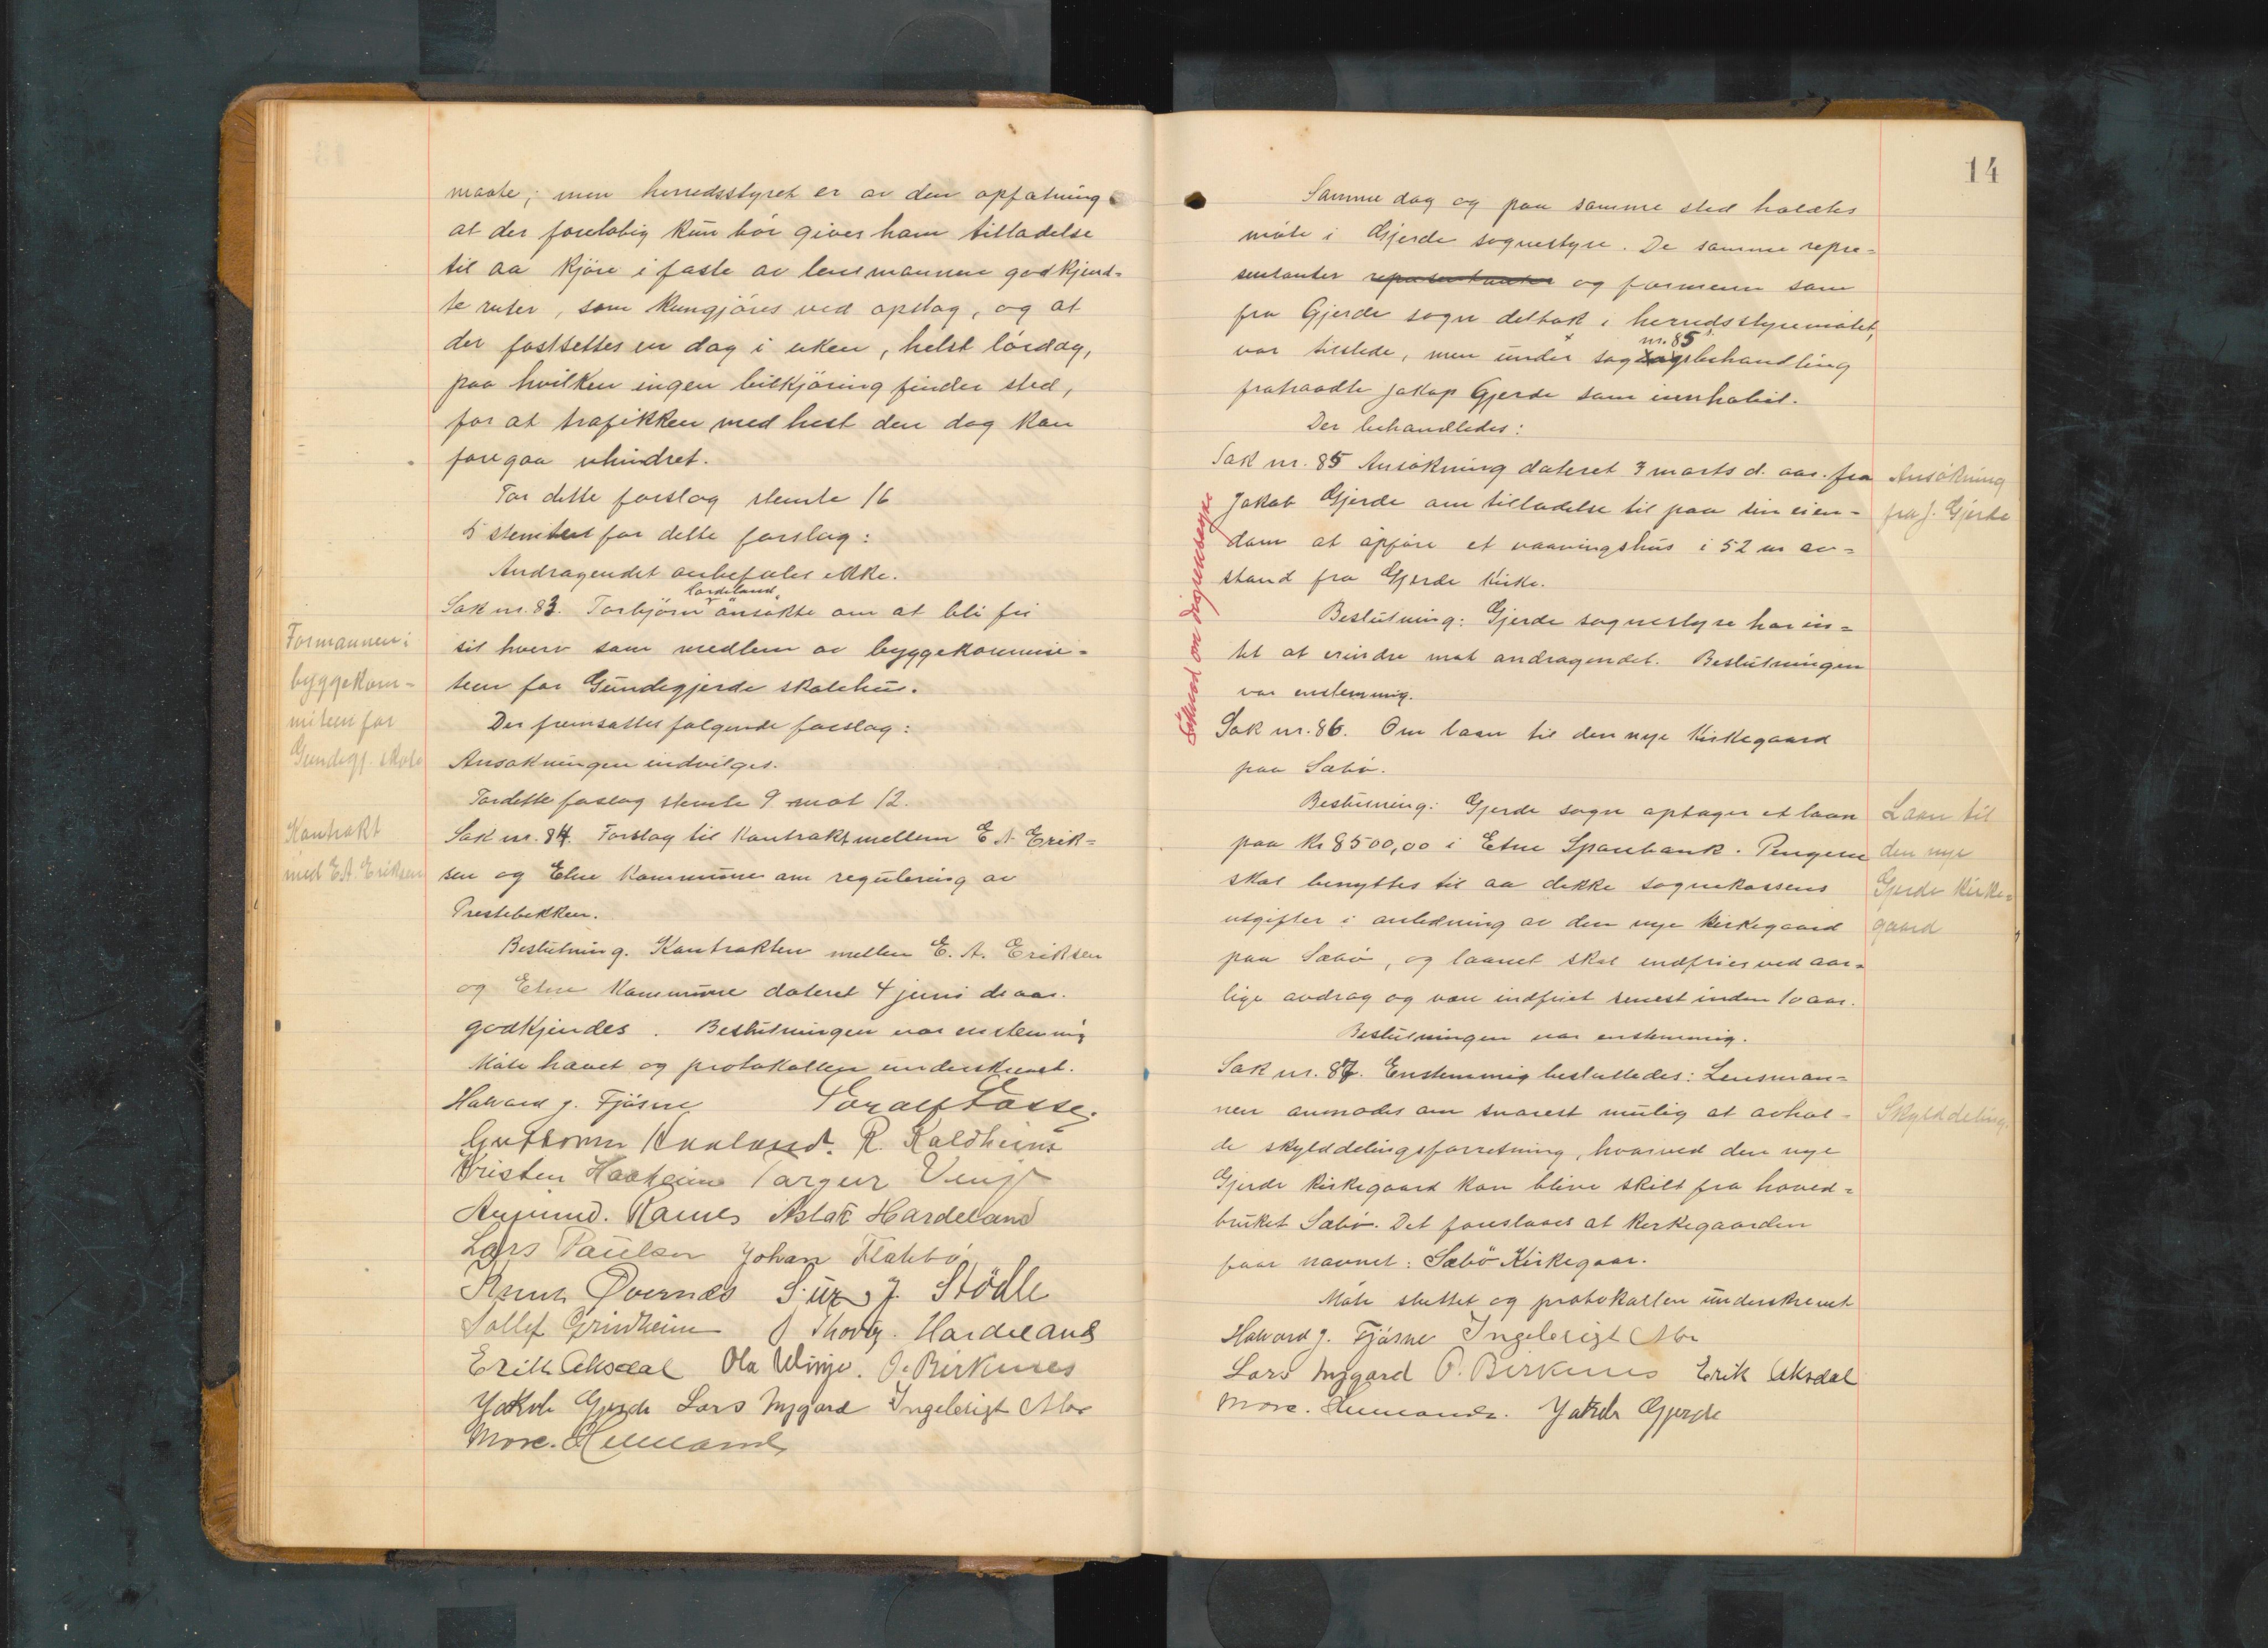 maate; men herredsstyret er av den opfatning
at der foreløbig kun bør gives ham tilladelse
til aa kjøre i faste av lensmannen godkjend-
te ruter, som kungjøres ved opslag, og at
der fastsettes en dag i uken, helst lørdag,
paa hvilken ingen bilkjøring finder sted,
for at trafikken med hest den dag kan
foregaa uhindret.
For dette forslag stemte 16
5 stemte for dette forslag:
Andragendet anbefales ikke.
Sak nr. 83. Torbjørn Lardeland ansøkte om at bli fri
Formannen i
sit hverv som medlem av byggekommi-
byggekom-
teen for Gundegjerde skolehus.
miteen for
Der fremsattes følgende forslag:
Gundegj. skole
Ansøkningen indvilges.
For dette forslag stemte 9 mot 12.
Kontrakt
Sak nr. 84. Forslag til kontrakt mellem E A Erik-
med E.A. Eriksen
sen og Etne kommune om regulering av
Prestebekken.
Beslutning. Kontrakten mellem E. A. Eriksen
og Etne kommune dateret 4 juni d. aar.
godkjendes. Beslutningen var enstemmig
Møte hævet og protokollen underskrevet.
Halvard J. Fjøsne Toralf Fosse.
Guttorm Kaaland. R. Kaldheim
Kristen Haaheim Torger Vinje
Amund. Rames Aslak Hardeland
Lars Paulsen Johan Flatebø
Knut Øvernes J. Stødle
Tollef Grindheim Hardeland
Erik Aksdal Ola Winje. O. Birknes
Jakob Gjerde Lars Nygard Ingebrigt Mo
14
Samme dag og paa samme sted holdtes
møte i Gjerde sognestyre. De samme repre-
sentanter representanter og formenn som
fra Gjerde sogn deltok i herredsstyremøtet,
var tilstede, men under sag nr. 85 s behandling
fratraadte Jakop Gjerde som innhabil.
Der behandledes:
Sak nr. 85 Ansøkning dateret 3 marts d. aar. fra
Ansøkning
Jakob Gjerde om tilladelse til paa sin eien-
fra J. Gjerde
dom at opføre et vaaningshus i 52 m av-
stand fra Gjerde kirke.
Beslutning: Gjerde sognestyre har in-
tet at erindre mot andragendet. Beslutningen
var enstemmig.
Sak nr. 86. Om laan til den nye kirkegaard
paa Sæbø.
Beslutning: Gjerde sogn optager et laan
Laan til
paa kr 8500,00 i Etne Sparebank. Pengene
den nye
skal benyttes til aa dekke sognekassens
Gjerde kirke-
utgifter i anledning av den nye kirkegaard
gaard
paa Sæbø, og laanet skal indfries ved aar-
lige avdrag og være indfriet senest inden 10 aar.
Beslutningen var enstemmig.
Sak nr. 87. Enstemmig besluttedes: Lensman-
nen anmodes om snarest mulig at avhol-
Skylddeling.
de skylddelingsforretning, hvorved den nye
Gjerde kirkegaard kan blive skilt fra hoved-
bruket Sæbø. Det foreslaaes at kirkegaarden
faar navnet: Sæbø Kirkegaar.
Møte sluttet og protokollen underskrevet
Halvard J. Fjøsne Ingebrigt Mo
Lars Nygard O. Birknes Erik Aksdal
Jakob Gjerde